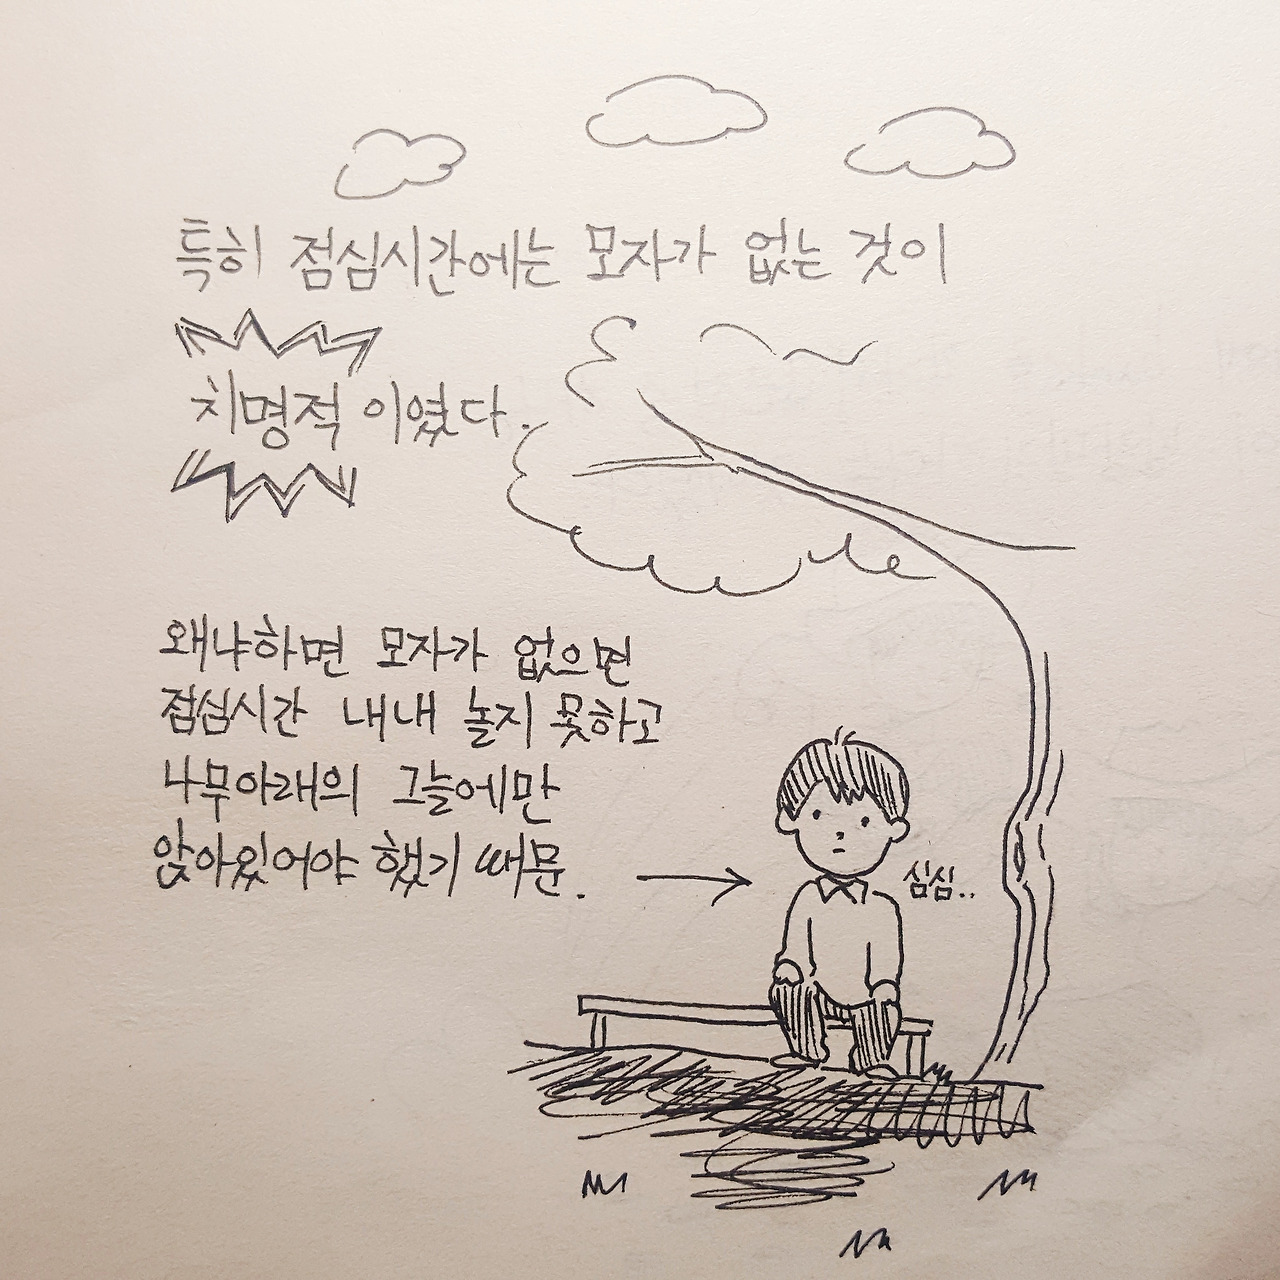 특히 점심시간에는 모자가 없는 것이
치명적 이였다.
왜냐하면 모자가 없으면
점심시간 내내 놀지 못하고
나무아래의 그늘에만
앉아있어야 했기 때문.
심심..